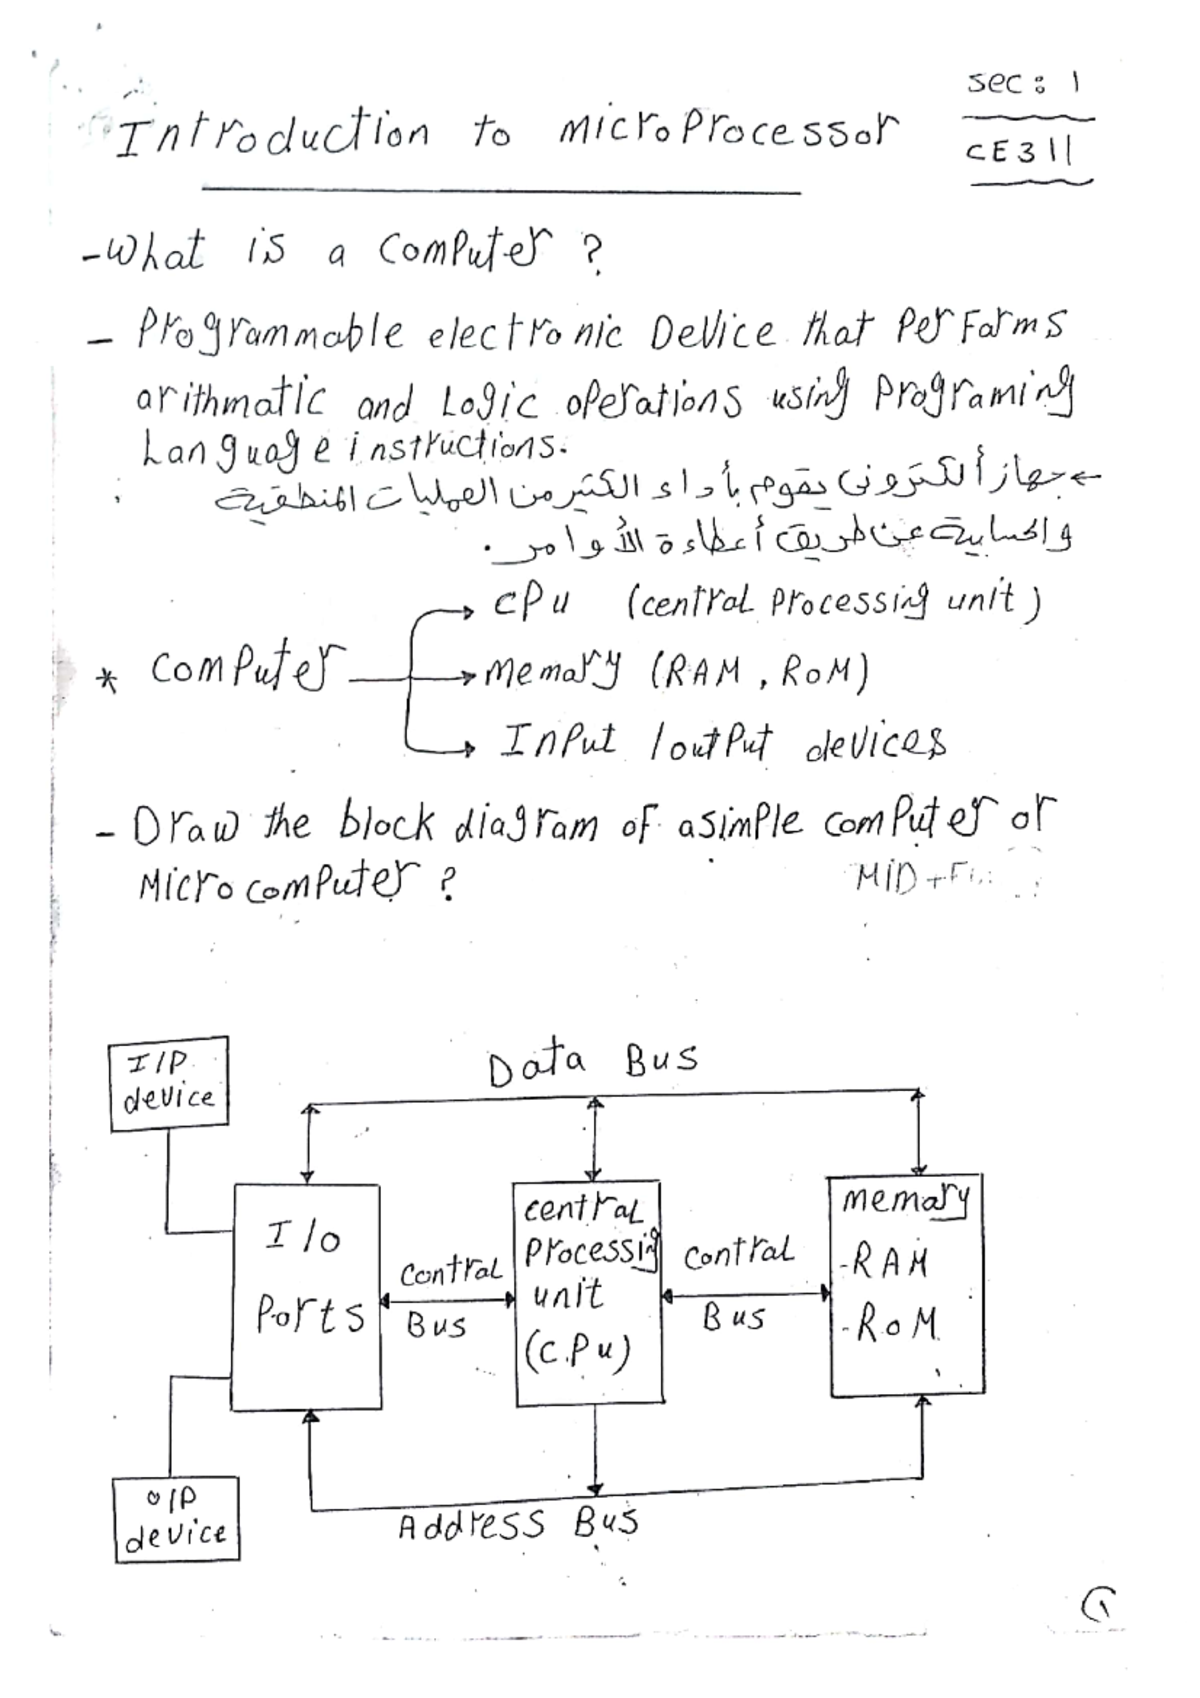 sec: 1
Introduction to microprocessor
CE311
- What is a computer ?
- Programmable electronic Device that Performs
arithmatic and Logic operations using programing
Language instructions.
← جهاز ألكترونى يقوم بأداء الكثير من العمليات المنطقية
والحسابية عن طريق أعطاءة الأوامر.
cpu (central processing unit)
* computer
memory (RAM, ROM)
Input / output devices
- Draw the block diagram of a simple computer or
Microcomputer ?
MID +
I/P
device
Data Bus
I/o
Ports
Control
Bus
central
processing
unit
(C.P.u)
Control
Bus
memory
-RAM
-ROM
o/p
device
Address Bus
١